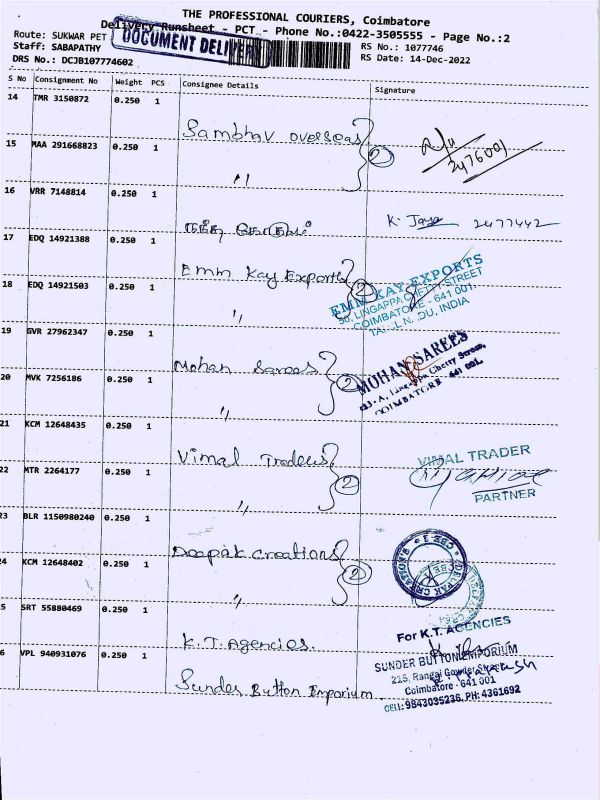 THE PROFESSIONAL COURIERS, Coimbatore
Delivery Runsheet - PCT - Phone No.:0422-3505555 - Page No.:2
Route: SUKWAR PET
DOCUMENT DELIVERY
RS No.: 1077746
Staff: SABAPATHY
RS Date: 14-Dec-2022
DRS No.: DCJB107774602
S No Consignment No Weight PCS Consignee Details Signature
14 TMR 3150872 0.250 1
Sambhav Overseas 2
2476001
15 MAA 291668823 0.250 1
"
16 VRR 7148814 0.250 1
K. Jaya 2477442
17 EDQ 14921388 0.250 1
Emm Kay Exports 2
EMM KAY EXPORTS
50, LINGAPPA CHETTY STREET
COIMBATORE - 641 001.
INDIA
18 EDQ 14921503 0.250 1
"
19 GVR 27962347 0.250 1
Mohan Sarees 2
MOHAN SAREES
Lingappa Chetty Street,
COIMBATORE - 641 001.
20 MVK 7256186 0.250 1
"
21 KCM 12648435 0.250 1
Vimal Traders 2
VIMAL TRADER
PARTNER
22 MTR 2264177 0.250 1
"
23 BLR 1150980240 0.250 1
Deepak Creations 2
DEEPAK CREATIONS
CBE-1
24 KCM 12648402 0.250 1
"
5 SRT 55880469 0.250 1
K.T. Agencies.
For K.T. AGENCIES
6 VPL 940931076 0.250 1
Sunder Button Emporium
SUNDER BUTTON EMPORIUM
215, Rangai Gowder Street
Coimbatore - 641 001
Cell: 9843035236, PH: 4361692